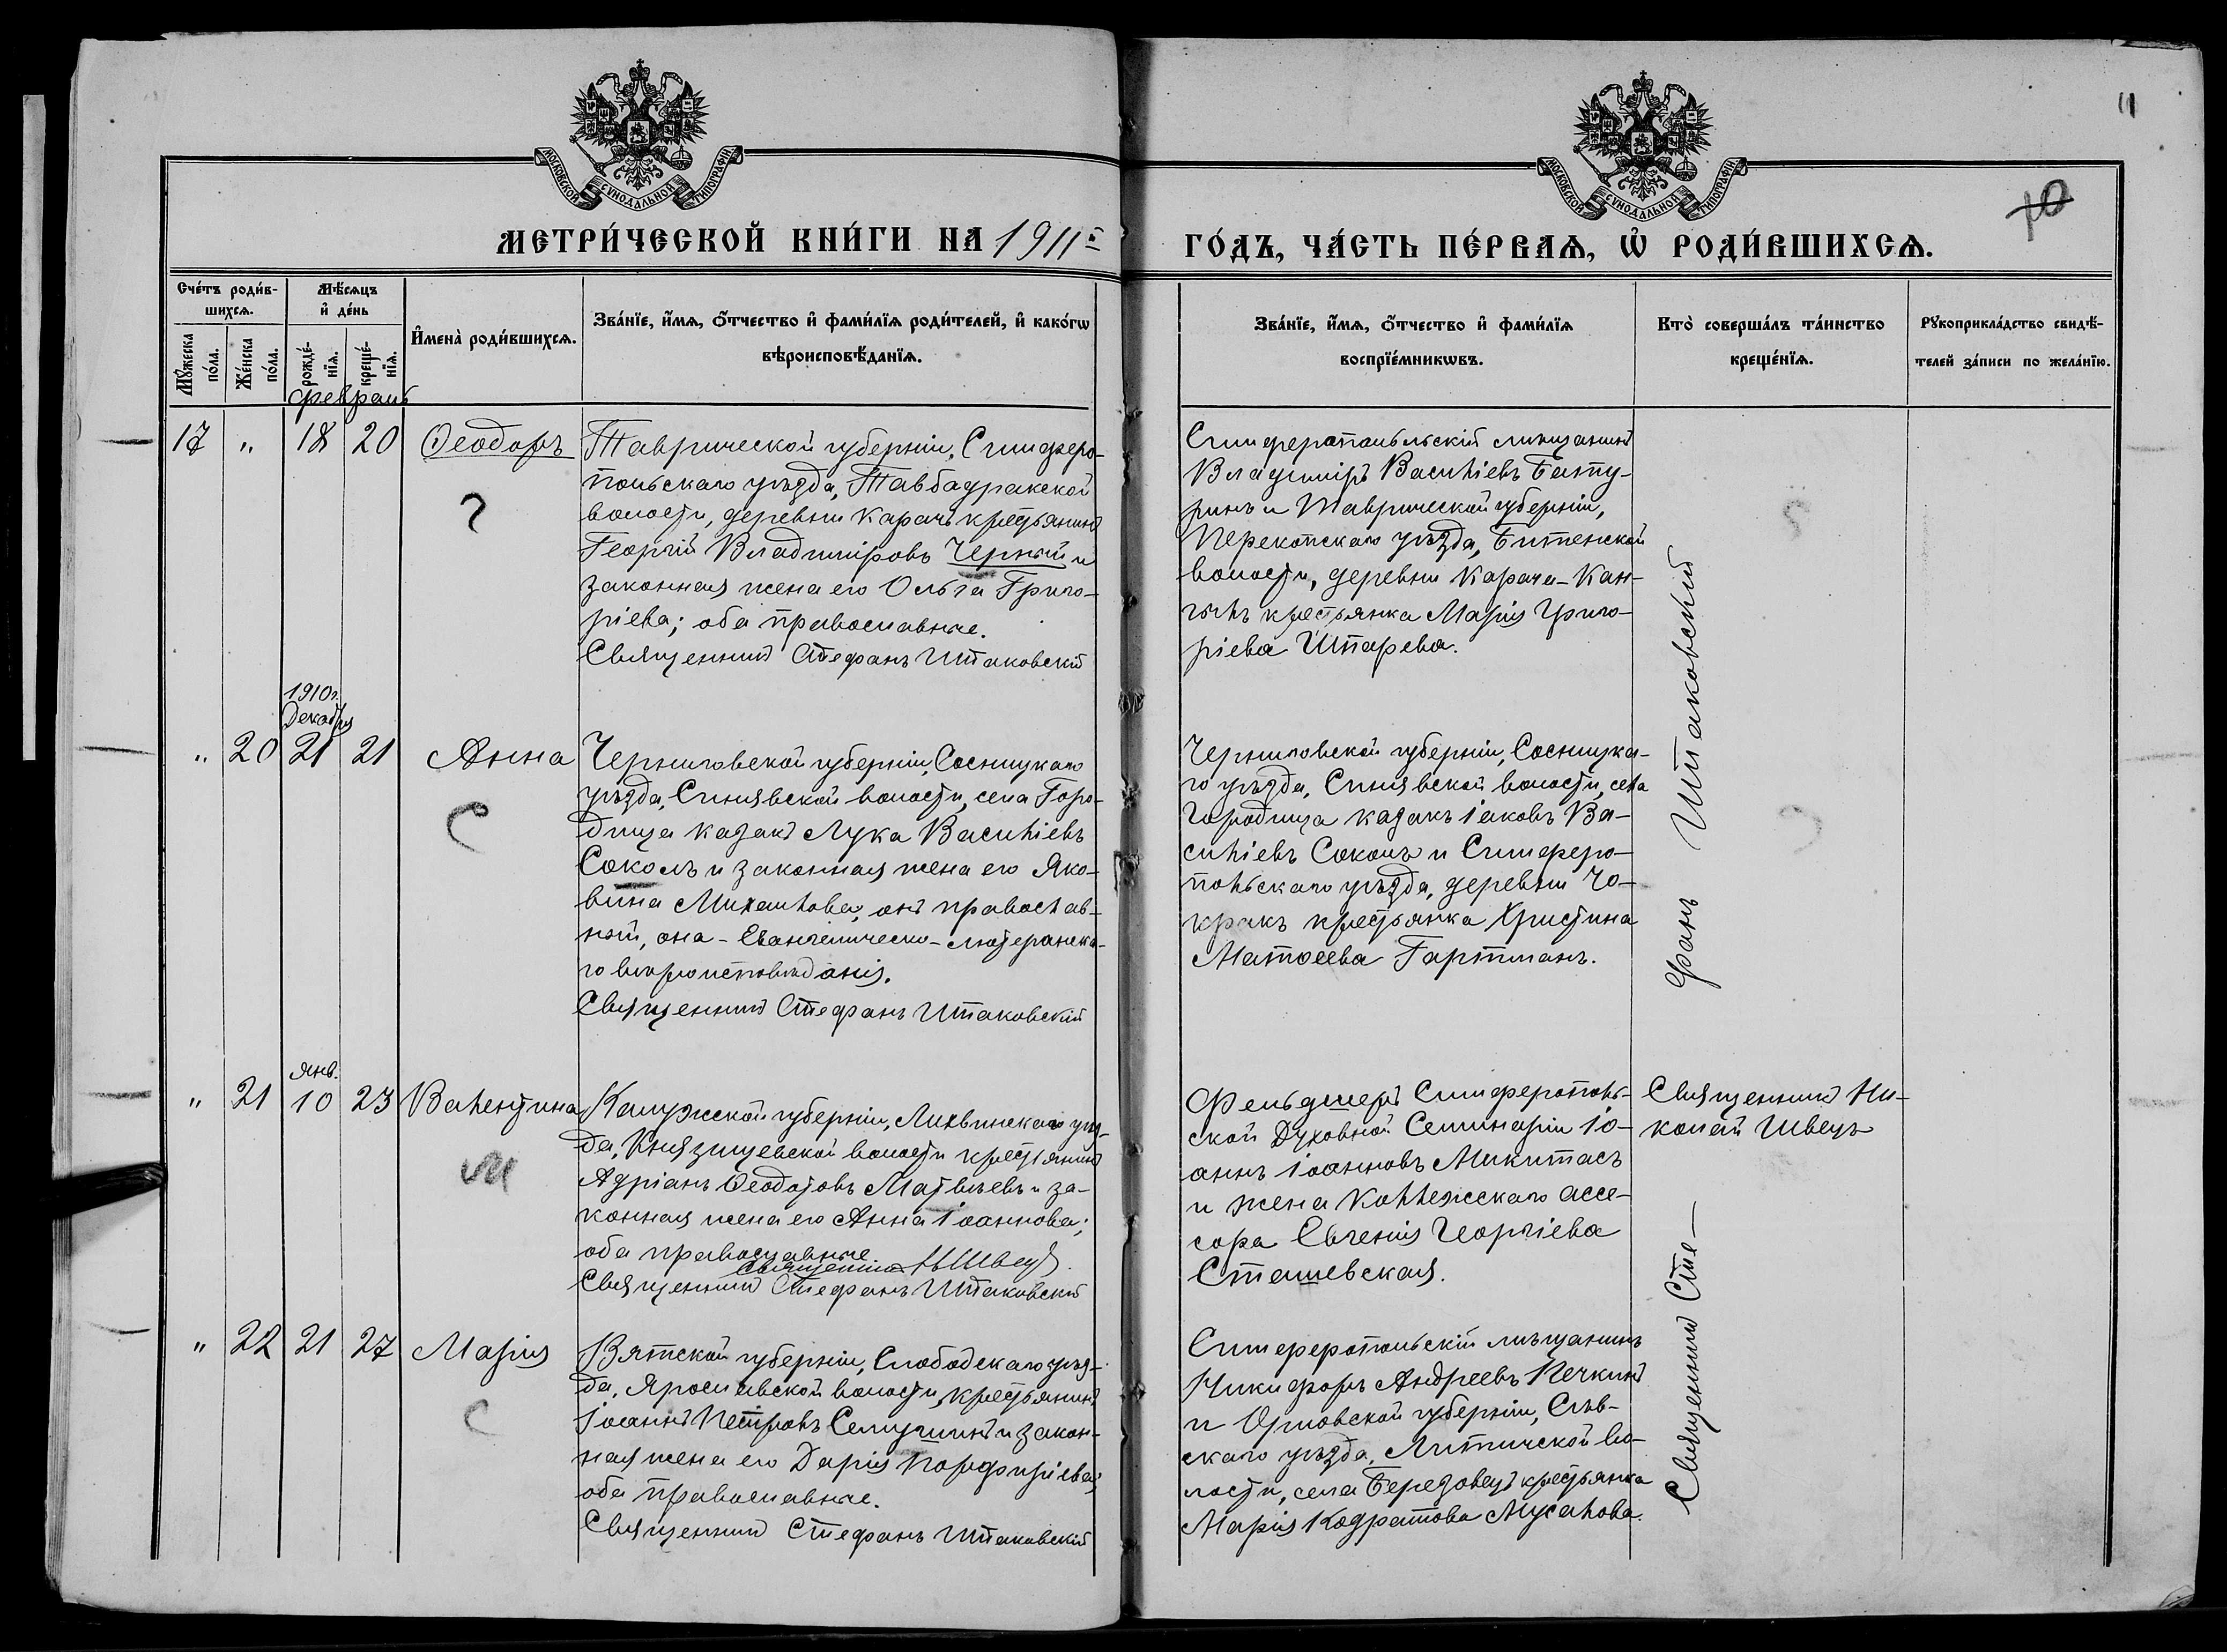 11
10
МОСКОВСКОЙ СѴНОДАЛЬНОЙ ТИПОГРАФІИ
МОСКОВСКОЙ СѴНОДАЛЬНОЙ ТИПОГРАФІИ
МЕТРИ́ЧЕСКОЙ КНИ́ГИ НА 1911 г
ГО́ДЪ, ЧА́СТЬ ПЕ́РВАѦ, Ѡ҆ РОДИ́ВШИХСѦ.
Сче́тъ роди́в-
шихсѧ.
Мꙋ́жеска по́ла.
Же́нска по́ла.
Мѣ́сѧцъ
и҆ де́нь
рожде́-
нїѧ.
креще́-
нїѧ.
И҆мена̀ роди́вшихсѧ.
Зва́нїе, и҆́мѧ, ѻ҆́тчество и҆ фами́лїѧ роди́телей, и҆ како́гѡ
вѣроисповѣ́данїѧ.
Зва́нїе, и҆́мѧ, ѻ҆́тчество и҆ фами́лїѧ
воспрїе́мникѡвъ.
Кто̀ соверша́лъ та́инство
креще́нїѧ.
Рꙋкоприкла́дство свидѣ́-
телей за́писи по жела́нїю.
февраль
17 " 18 20 Ѳеодоръ
Таврической губерніи, Симферо-
польскаго уѣзда, Тавбадракской
волости, деревни Карачъ крестьянинъ
Георгій Владиміровъ Черный и
законная жена его Ольга Григо-
ріева; оба православные.
Священникъ Стефанъ Штаковскій
Симферопольскій мѣщанинъ
Владиміръ Василіевъ Бату-
ринъ и Таврической губерніи,
Перекопскаго уѣзда, Битенской
волости, деревни Карачи-Кан-
крестьянка Марія Григо-
ріева Штарева.
1910 г.
Декабря
" 20 21 21 Анна
Черниговской губерніи, Сосницкаго
уѣзда, Синявской волости, села Горо-
дища казакъ Лука Василіевъ
Соколъ и законная жена его Яко-
вина Михаилова; онъ православ-
ный, она - Евангелическо-лютеранска-
го вѣроисповѣданія.
Священникъ Стефанъ Штаковскій
Черниговской губерніи, Сосницка-
го уѣзда, Синявской волости, села
Городища казакъ Іаковъ Ва-
силіевъ Соколъ и Симферо-
польскаго уѣзда, деревни Чо-
кракъ крестьянка Христина
Матѳеева Гартманъ.
Янв.
" 21 10 23 Валентина
Калужской губерніи, Лихвинскаго уѣз-
да, Князищевской волости крестьянинъ
Адріанъ Ѳеодотовъ Матвѣевъ и за-
конная жена его Анна Іоаннова;
оба православные.
Священникъ Н. Швецъ.
Священникъ Стефанъ Штаковскій
Фельдшеръ Симферополь-
ской Духовной Семинаріи Іо-
аннъ Іоанновъ Микитасъ
и жена Коллежскаго ассе-
сора Евгенія Георгіева
Сташевская.
Священникъ Ни-
колай Швецъ
" 22 21 27 Марія
Вятской губерніи, Слободскаго уѣз-
да, Ярославской волости, крестьянинъ
Іоаннъ Петровъ Семушинъ и закон-
ная жена его Дарія Порфиріева;
оба православные.
Священникъ Стефанъ Штаковскій
Симферопольскій мѣщанинъ
Никифоръ Андреевъ Печкинъ
и Орловской губерніи, Сѣв-
скаго уѣзда, Литичской во-
лости, села Березовецъ крестьянка
Марія Кодратова Мусатова.
Священникъ Сте-
фанъ Штаковскій